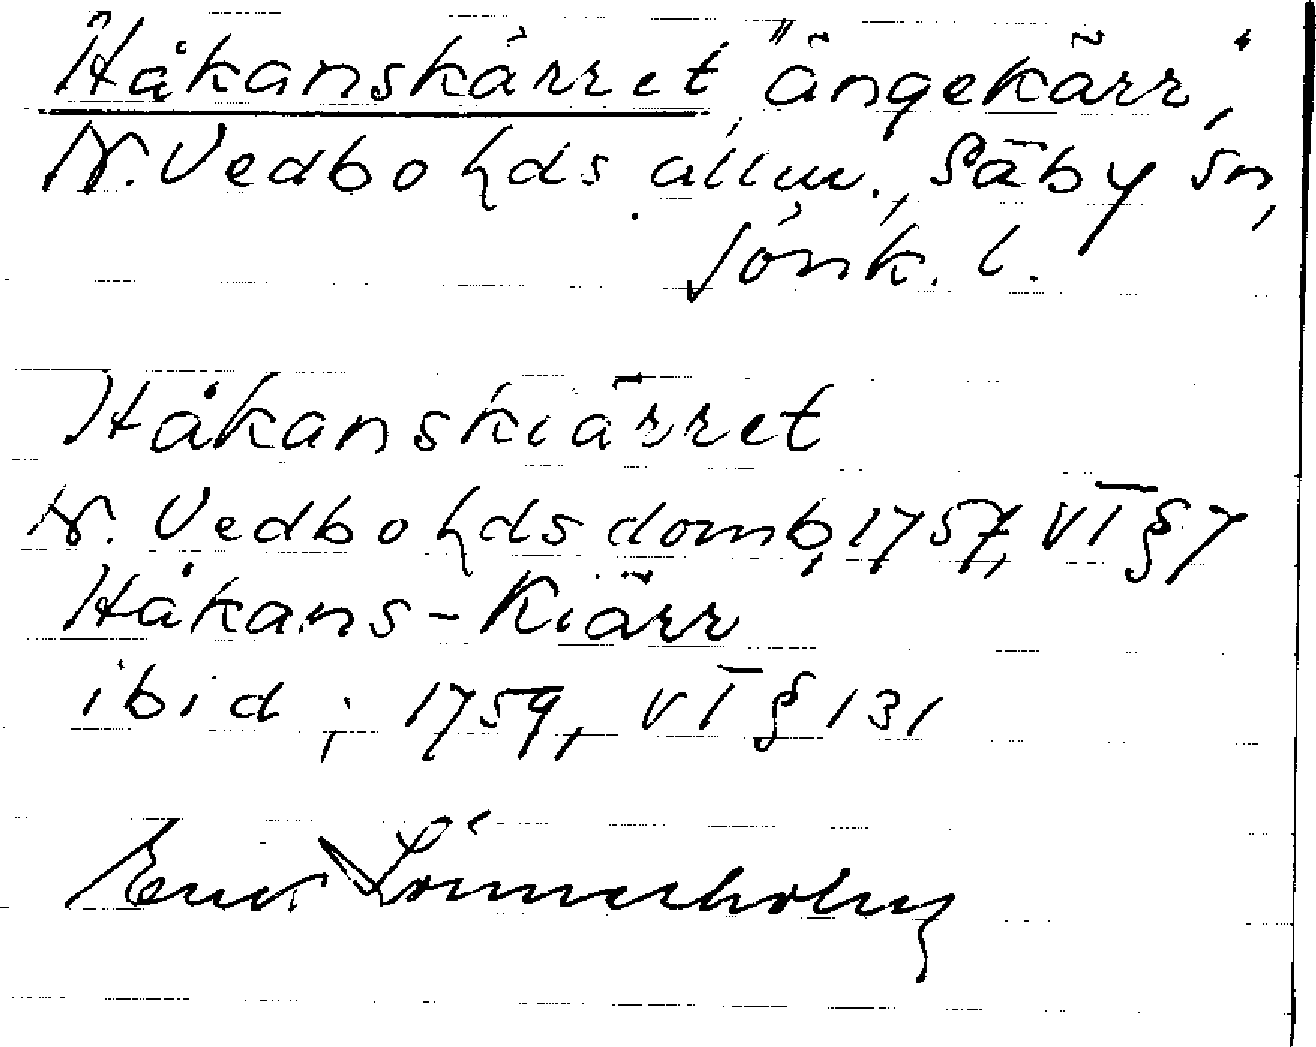 Håkanskärret "ängekärr",
N. Vedbo hds allm., Säby sn,
Jönk. l.
Håkanskiärret
N. Vedbo hds domb, 1757, VT § 7
Håkans-Kiärr
ibid ; 1759, VT § 131
Erik Lönnerholm